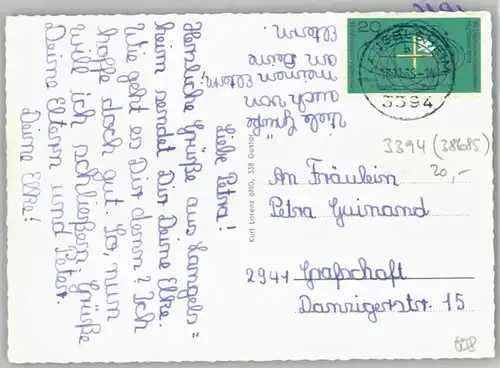 Liebe Petra!
Herzliche Grüße aus Langels=
heim sendet Dir Deine Elke.
Wie geht es Dir denn? Ich
hoffe doch gut. So, nun
will ich schließen. Grüße
Deine Eltern und Peter.
Deine Elke!
Viele Grüße
auch von
meinen Eltern,
an Deine
Eltern.
Kurt Lorenz oHG, 338 Goslar
20
3394
3394 (38685)
20,-
An Fräulein
Petra Guinand
2941 Grafschaft
Danzigerstr. 15